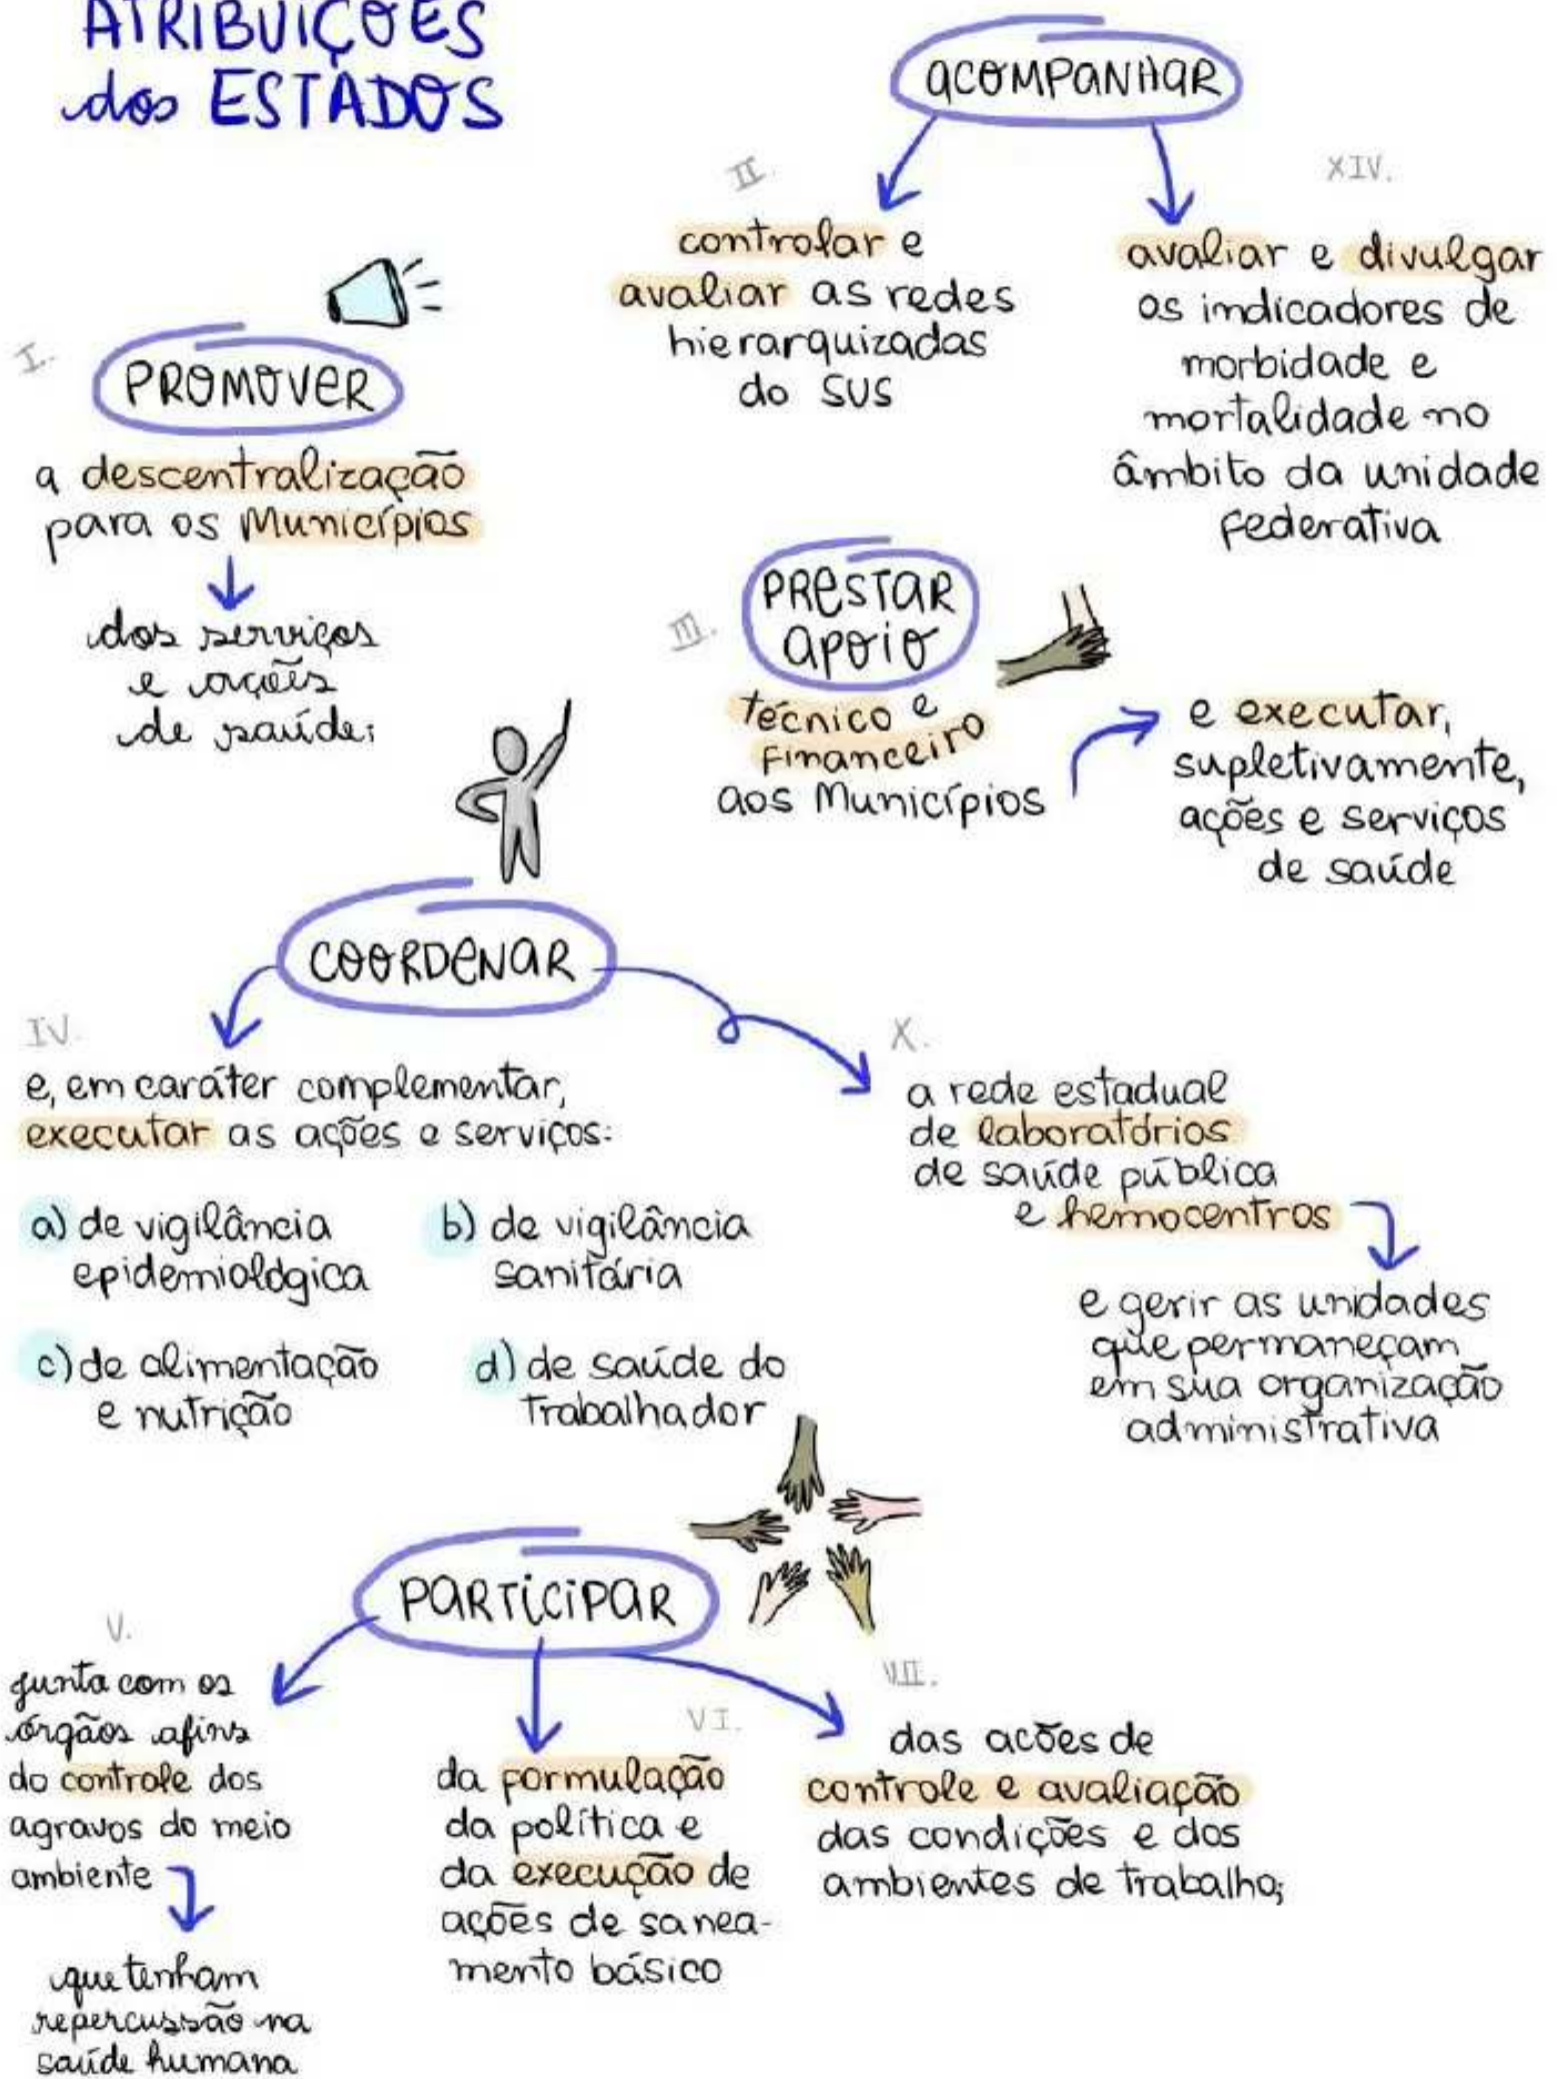 ATRIBUIÇÕES
dos ESTADOS
I.
PROMOVER
a descentralização
para os Municípios
dos serviços
e ações
de saúde;
ACOMPANHAR
II.
controlar e
avaliar as redes
hierarquizadas
do SUS
XIV.
avaliar e divulgar
os indicadores de
morbidade e
mortalidade no
âmbito da unidade
federativa
III.
PRESTAR
APOIO
técnico e
financeiro
aos Municípios
e executar,
supletivamente,
ações e serviços
de saúde
COORDENAR
IV.
e, em caráter complementar,
executar as ações e serviços:
a) de vigilância
epidemiológica
b) de vigilância
sanitária
c) de alimentação
e nutrição
d) de saúde do
trabalhador
X.
a rede estadual
de laboratórios
de saúde pública
e hemocentros
e gerir as unidades
que permaneçam
em sua organização
administrativa
PARTICIPAR
V.
junta com os
órgãos afins
do controle dos
agravos do meio
ambiente
que tenham
repercussão na
saúde humana
VI.
da formulação
da política e
da execução de
ações de sanea-
mento básico
VII.
das acões de
controle e avaliação
das condições e dos
ambientes de trabalho;